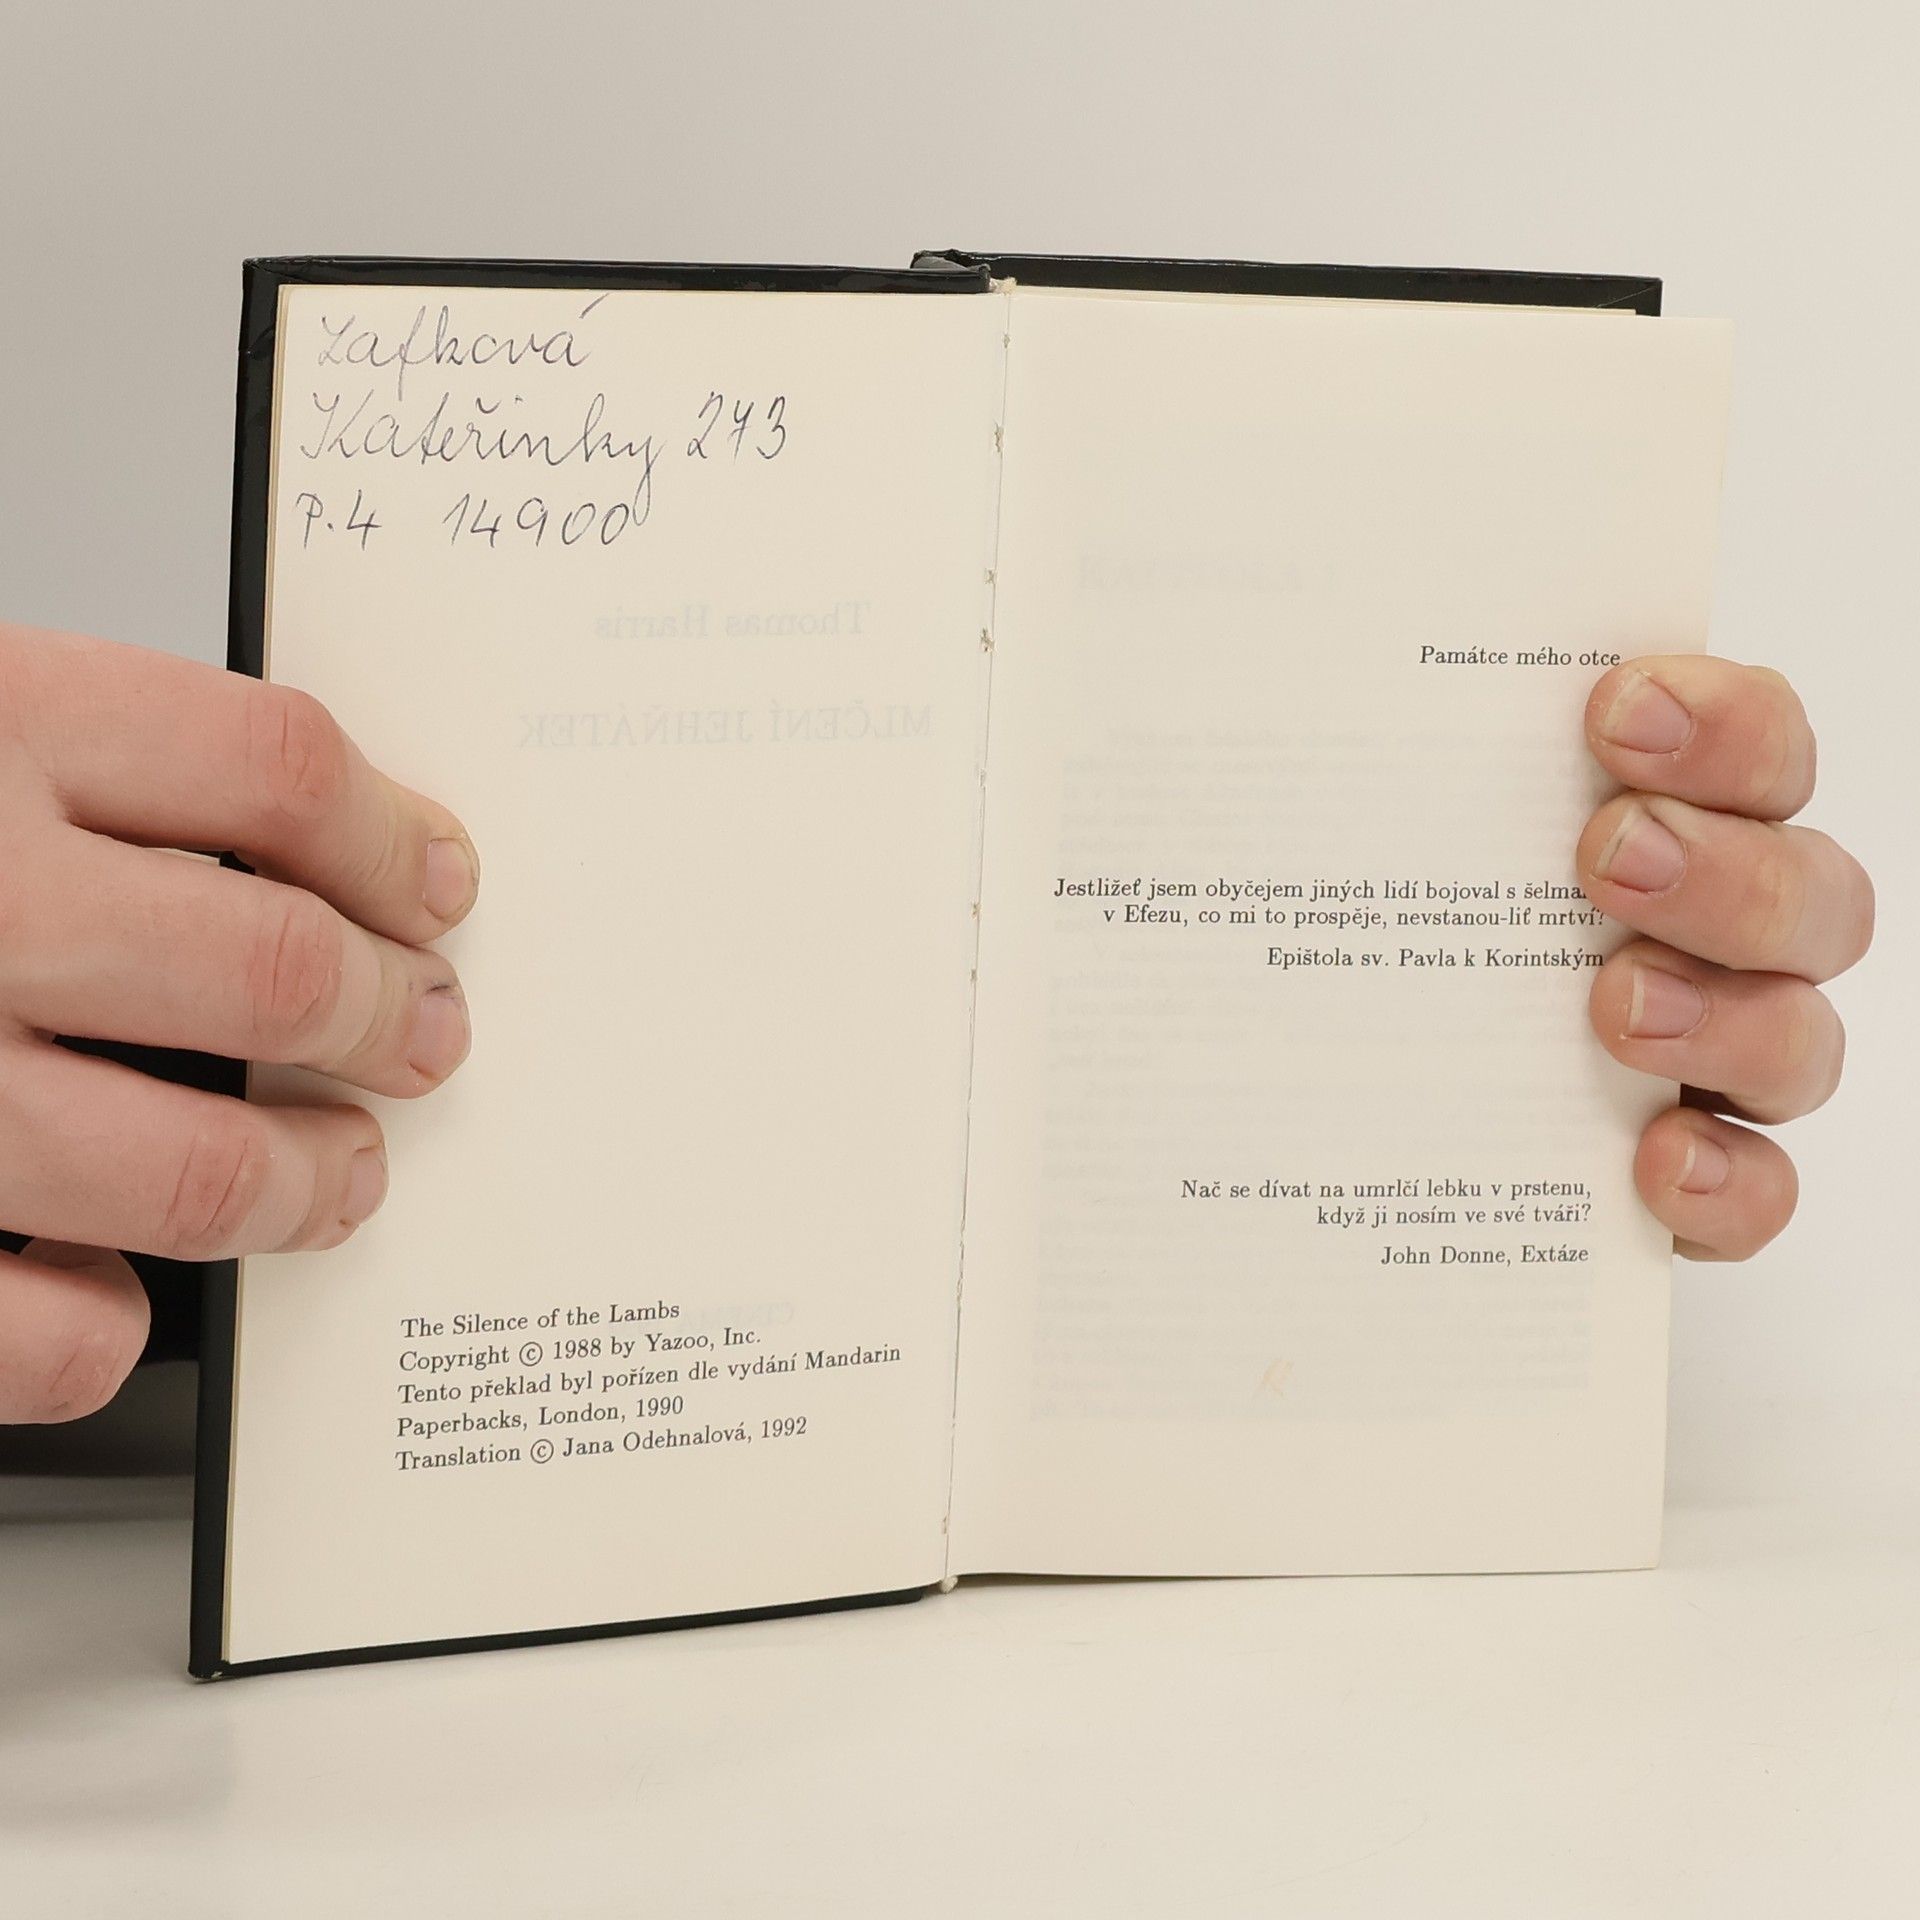 Zafková
Kateřinky 273
P.4 14900
Thomas Harris
MLČENÍ JEHŇÁTEK
The Silence of the Lambs
Copyright © 1988 by Yazoo, Inc.
Tento překlad byl pořízen dle vydání Mandarin
Paperbacks, London, 1990
Translation © Jana Odehnalová, 1992
KAPITOLA 1
Památce mého otce
Jestližeť jsem obyčejem jiných lidí bojoval s
v Efezu, co mi to prospěje, nevstanou-liť mrtví?
Epištola sv. Pavla k Korintským
Nač se dívat na umrlčí lebku v prstenu,
když ji nosím ve své tváři?
John Donne, Extáze